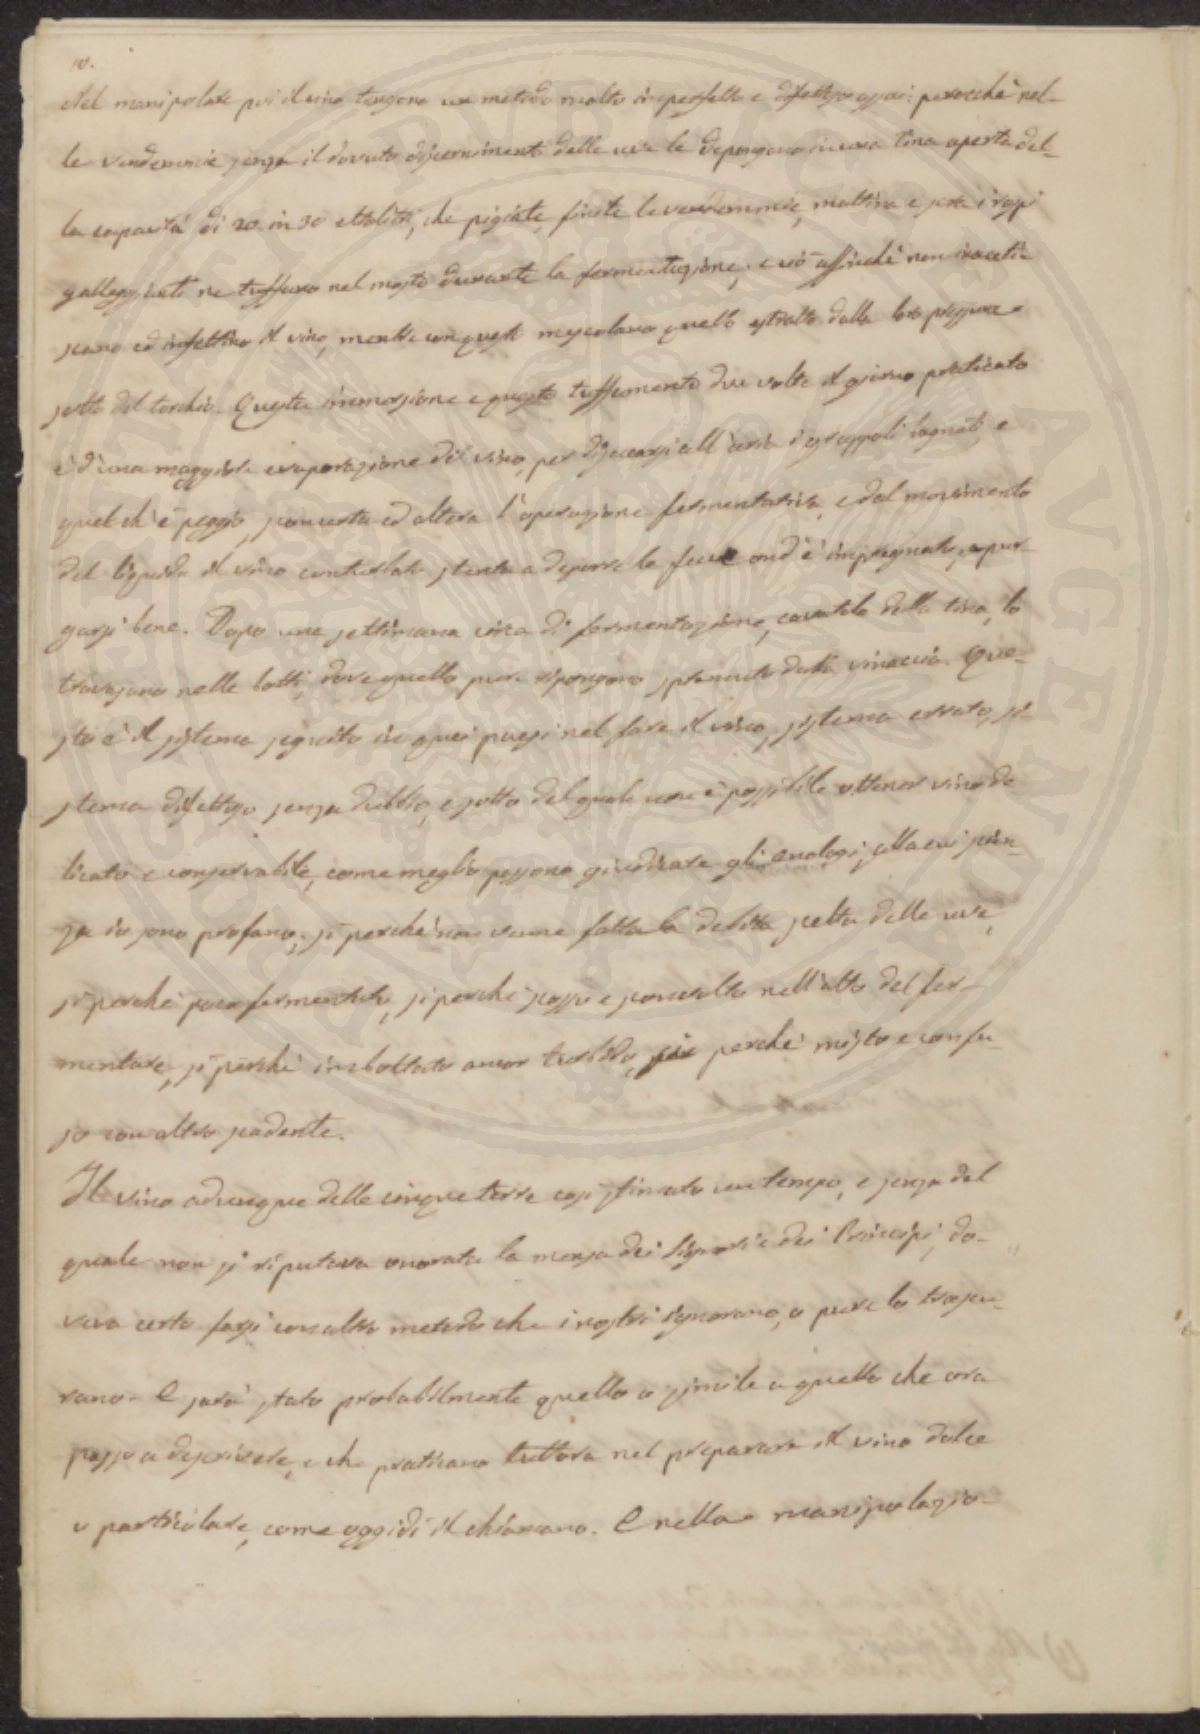 10.
Nel manipolare poi il vino tengono un metodo molto imperfetto e difettoso assai: perocchè nel-
le vendemmie senza il dovuto discernimento delle uve le depongono in una tina aperta del-
la capacità di 20 in 30 ettolitri, che pigiate, finite le vendemmie, mattina e sera i raspi
galleggianti ne tuffano nel mosto durante la fermentazione, e ciò affinchè non inaceti-
scano ed infettino il vino, mentre con questi mescolano quello estratto dalla loro pressione
sotto del torchio. Questa immersione e questo tuffamento due volte il giorno praticato
è d'una maggiore evaporazione del vino, per disseccarsi all'aria i grappoli bagnati, e
quel ch'è peggio, sconcerta ed altera l'operazione fermentativa, e dal movimento
del liquido il vino conturbato stenta a deporre la feccie ond'è impregnato, a pur-
garsi bene. Dopo una settimana circa di fermentazione, cavatolo dalla tina, lo
travasano nelle botti, dove quello pure ripongono spremuto dalla vinaccia. Que-
sto è il sistema seguito in quei paesi nel fare il vino, sistema errato, si-
stema difettoso senza dubbio, e sotto del quale non è possibile ottener vino de-
licato e conservabile, come meglio possono giudicare gli enologi, alla cui scien-
za io sono profano; sì perchè non venne fatta la debita scelta delle uve,
sì perchè poco fermentato, sì perchè scosso e sconvolto nell'atto del fer-
mentare, sì perchè imbottato ancor turbido, sia perchè misto e confu-
so con altro scadente.
Il vino adunque delle cinque terre così stimato un tempo, e senza del
quale non si riputava onorata la mensa dei Signori e dei Principi, do-
veva certo farsi con altro metodo che i nostri ignorano, o pure lo trascu-
rano. E sarà stato probabilmente quello o simile a quello che ora
passo a descrivere, e che praticano tuttora nel preparare il vino dolce
o particolare, come oggidì il chiamano. E nella manipolazio-